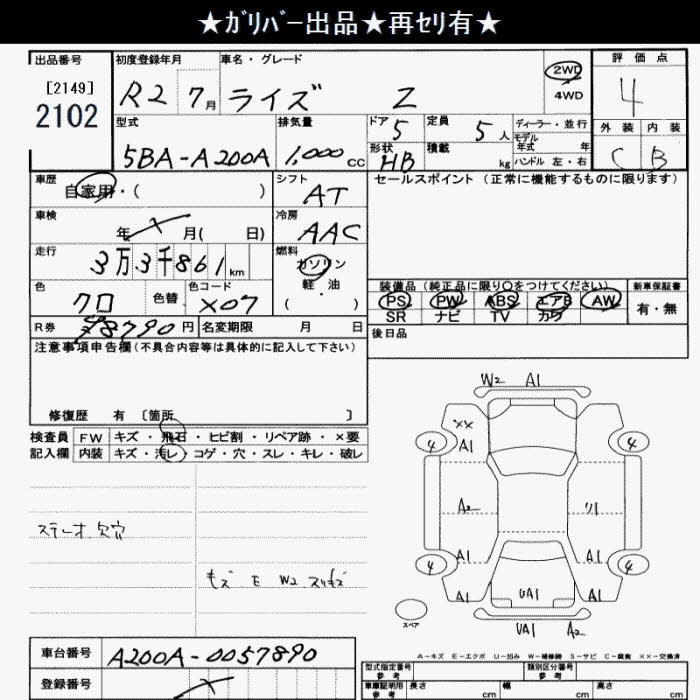 ★ガリバー出品★再セリ有★
出品番号 初度登録年月 車名・グレード 評価点
[2149] R2 7月 ライズ Z 2WD 4WD 4
2102
型式 排気量 ドア 定員 ディーラー・並行 外装 内装
5BA-A200A 1,000cc 5 5人 モデル年式 年 C B
形状 HB 積載 kg ハンドル 左・右
車歴 自家用・( ) シフト AT セールスポイント (正常に機能するものに限ります)
車検 年 月( 日) 冷房 AAC
走行 3万3千861km 燃料 ガソリン・軽油 ( )
色 クロ 色替 色コード X07
装備品 (純正品に限り○をつけてください) 新車保証書
PS PW ABS エアB AW 有・無
SR ナビ TV カワ
R券 8790円 名変期限 月 日 後日品
注意事項申告欄(不具合内容等は具体的に記入して下さい)
修復歴 有 〔箇所 〕
検査員 FW キズ・飛石・ヒビ割・リペア跡・×要
記入欄 内装 キズ・汚レ・コゲ・穴・スレ・キレ・破レ
W2 A1
XX
A1
4 4
A2 リ1
A1 A1
4 4
A1 UA1 A1
UA1 A2
スペア
ステーオ欠穴
モズ E W2 スリキズ
A-キズ E-エクボ U-凹み W-補修跡 S-サビ C-腐食 ××-交換済
車台番号 A200A-0057890
登録番号
型式指定番号 参考 類別区分番号 参考
車庫証明用 参考 長さ cm 幅 cm 高さ cm